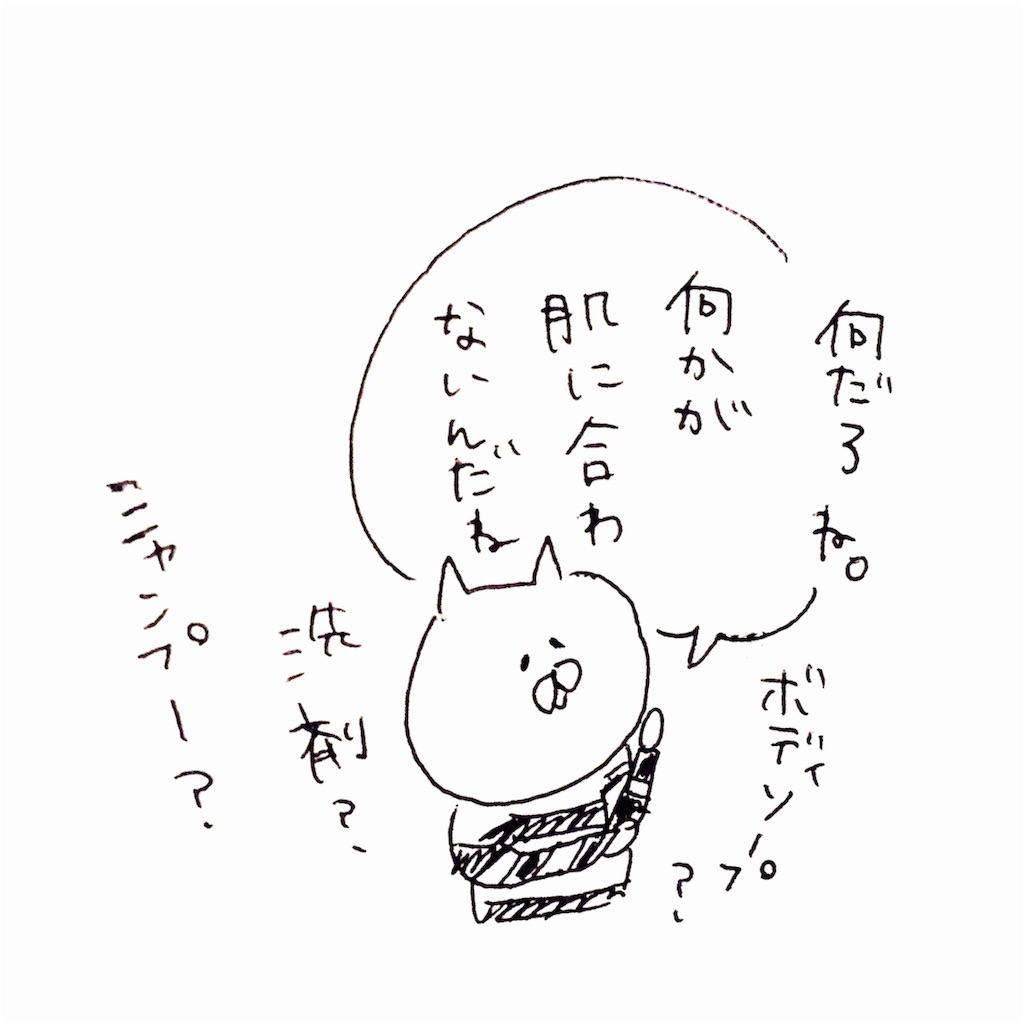 何だろね。
何かが
肌に合わ
ないんだね
ボディソープ
?
洗剤?
シャンプー?